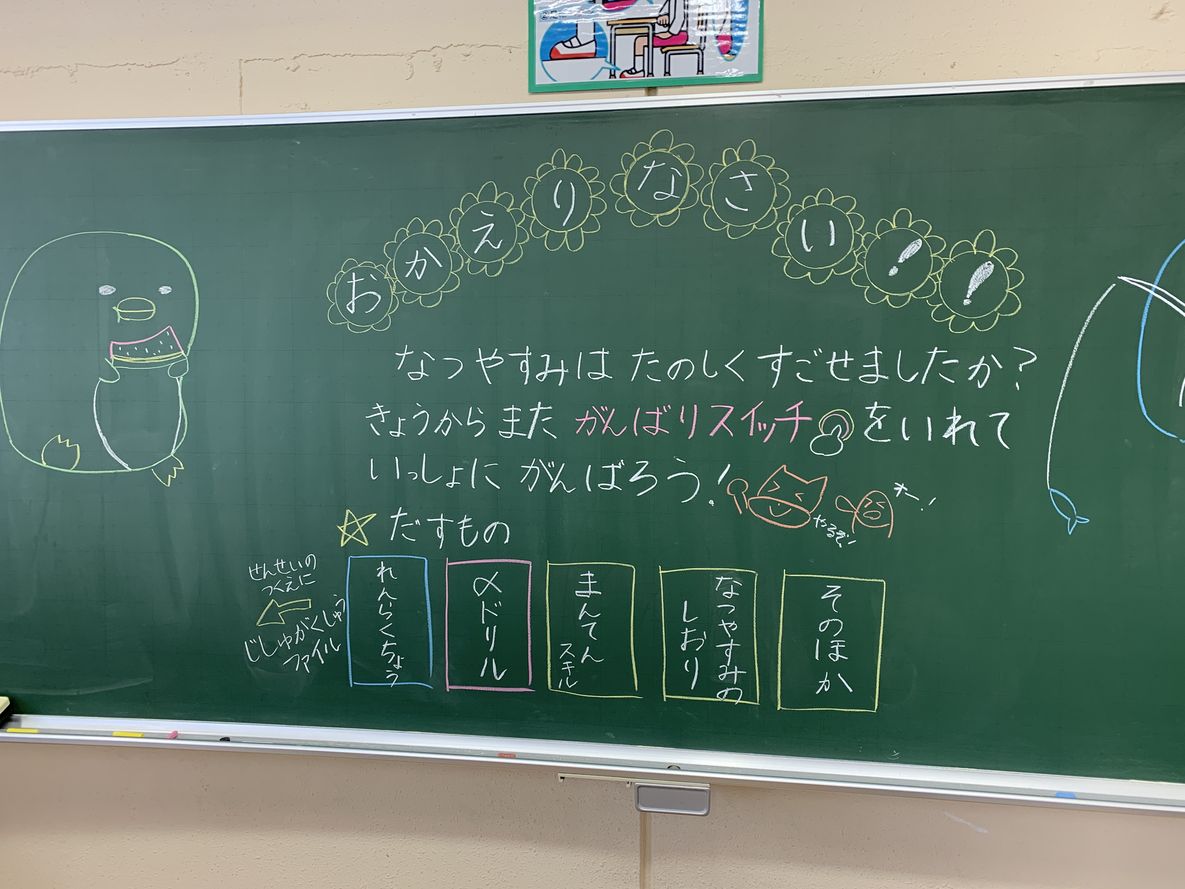 おかえりなさい!!
なつやすみは たのしく すごせましたか?
きょうから また がんばりスイッチをいれて
いっしょに がんばろう!
やるぞー
オー!
☆ だすもの
せんせいの
つくえに
じしゅがくしゅう
ファイル
れんらくちょう
〆ドリル
まんてん
スキル
なつやすみの
しおり
そのほか